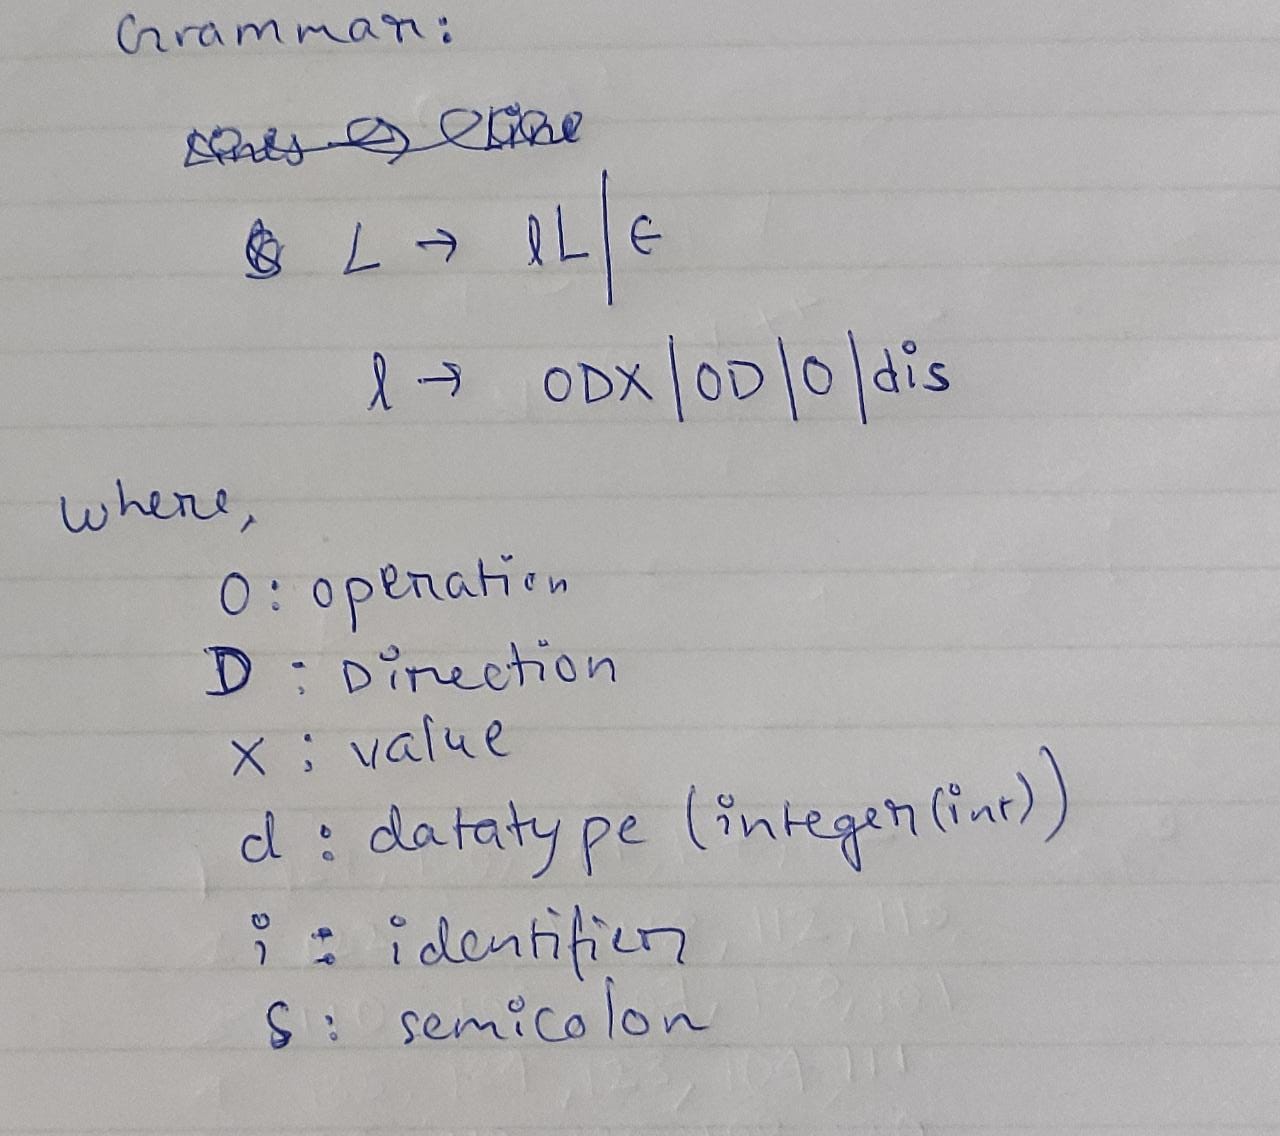 Grammar:
L → lL | ϵ
l → ODX | OD | O | dis
where,
O : operation
D : Direction
X : value
d : datatype (integer (int))
i : identifier
s : semicolon